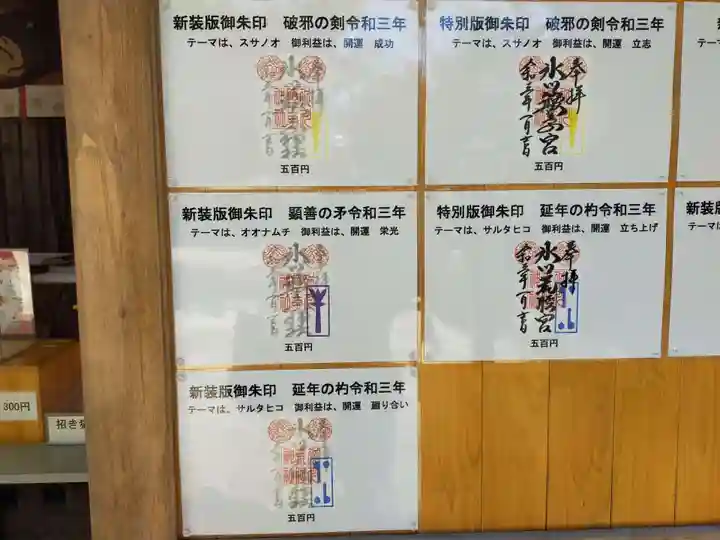 新装版御朱印　破邪の剣令和三年
テーマは、スサノオ　御利益は、開運　成功
五百円
特別版御朱印　破邪の剣令和三年
テーマは、スサノオ　御利益は、開運　立志
奉拝
五百円
新装版御朱印　顕善の矛令和三年
テーマは、オオナムチ　御利益は、開運　栄光
五百円
特別版御朱印　延年の杓令和三年
テーマは、サルタヒコ　御利益は、開運　立ち上げ
奉拝
五百円
新装版御朱印　延年の杓令和三年
テーマは、サルタヒコ　御利益は、開運　廻り合い
五百円
300円
招き